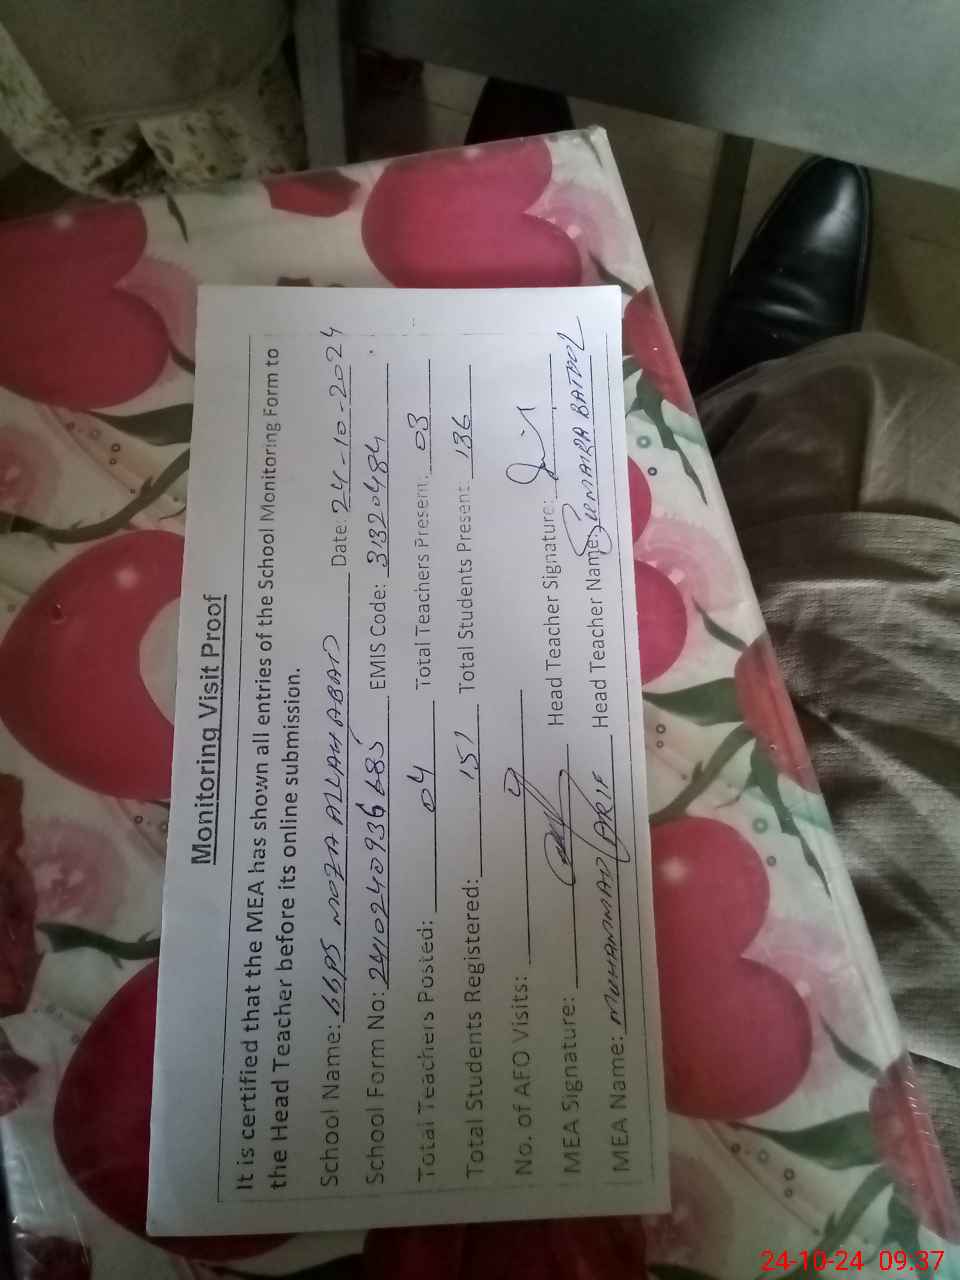 Monitoring Visit Proof
It is certified that the MEA has shown all entries of the School Monitoring Form to
the Head Teacher before its online submission.
School Name: GGPS MOZA ALLAH ABAD Date: 24-10-2024
School Form No: 2410240936685 EMIS Code: 31320484
Total Teachers Posted: 04 Total Teachers Present: 03
Total Students Registered: 151 Total Students Present: 136
No. of AEO Visits:
MEA Signature: Head Teacher Signature:
MEA Name: MUHAMMAD ARIF Head Teacher Name: SUMAIRA BATOOL
24-10-24 09.37